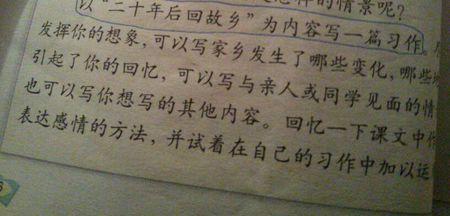 样的情景呢？
以“二十年后回故乡”为内容写一篇习作。
发挥你的想象，可以写家乡发生了哪些变化，哪些
引起了你的回忆，可以写与亲人或同学见面的情
也可以写你想写的其他内容。回忆一下课文中作
表达感情的方法，并试着在自己的习作中加以运